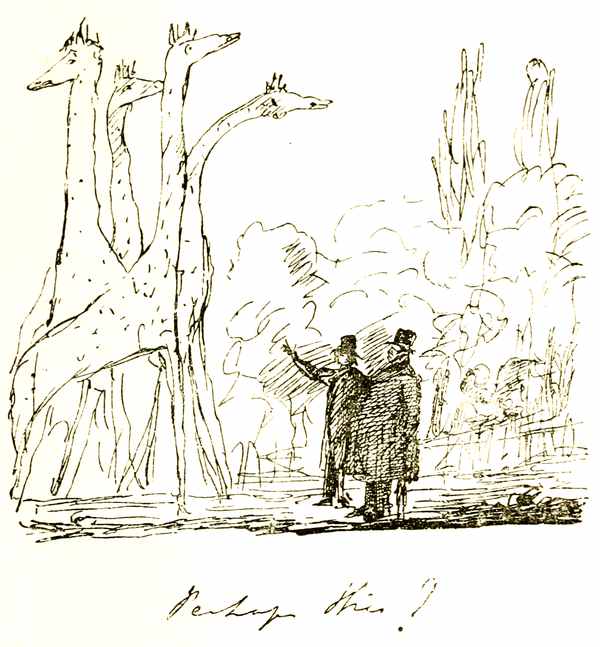 Perhaps this?